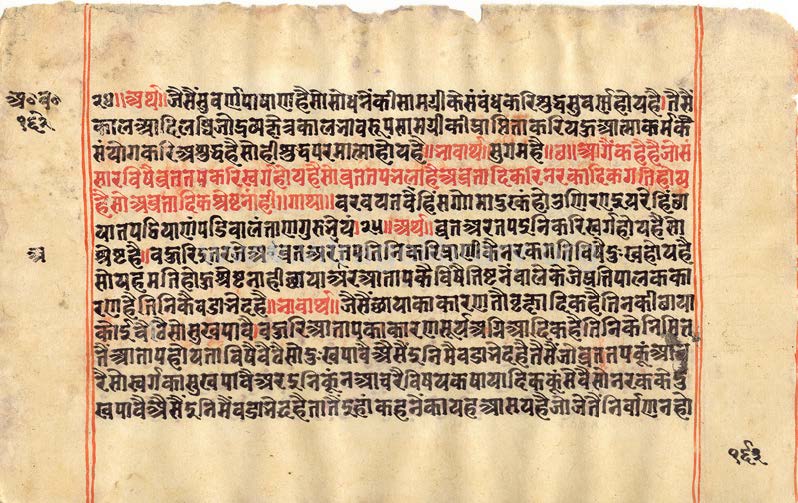 अ॰व॰
१६३
२४॥अर्थ॥जैसैंसुवर्णपाषाणहैसोसोधनेंकीसामग्रीकेसंबंधकरिशुद्धसुवर्णहोयहै।तैसैं
कालआदिलब्धिजोद्रव्यक्षेत्रकालभावरूपसामग्रीकीप्राप्तिताकरियहआत्माकर्मकै
संयोगकरिअशुद्धहैसोहीशुद्धपरमात्माहोयहै॥भावार्थ॥सुगमहै॥ ॥आगैंकहैहैजोसं
सारविषैव्रततपकरिस्वर्गहोयहैसोव्रततपभलाहैअव्रतादिकरिनरकादिकगतिहोय
हैसोअव्रतादिकश्रेष्टनाही॥गाथा॥वरवयतवेहिंसग्गोमादुक्खंहोउणिरइइयरेहिंछा
यातवट्ठियाणंपडिवालंताणगुरुभेयं॥२५॥अर्थ॥व्रतअरतपइनिकरिस्वर्गहोयहैसो
श्रेष्टहै॥बहुरिइतरजेअव्रतअरअतपतिनिकरिप्राणीकैनरकगतिविषैदुःखहोयहै
सोयहमतिहोऊश्रेष्टनाहीछायाअरआतापकैविषैतिष्टनेंवालेकेजेप्रतिपालकका
रणहैतिनिकैबडाभेदहै॥भावार्थ॥जैसैंछायाकाकारणतौवृक्षादिकहैतिनकीछाया
कोऊबैठैसोसुखपावैबहुरिआतापकाकारणसूर्यअग्निआदिकहैतिनिकेनिमित्त
तैंआतापहोयताविषैबैठैसोदुःखपावैऐसैंइनिमैबडाभेदहैतैसैंजोव्रततपकूंआच
रैसोस्वर्गकासुखपावैअरइनिकूंनआचरैविषयकषायादिककूंसेवैसोनरककेदु
खपावैऐसैंइनिमैंबडाभेदहैतातैंइहांकहनेकायहआसयहैजोजेतैंनिर्वाणनहो
अ
१६३